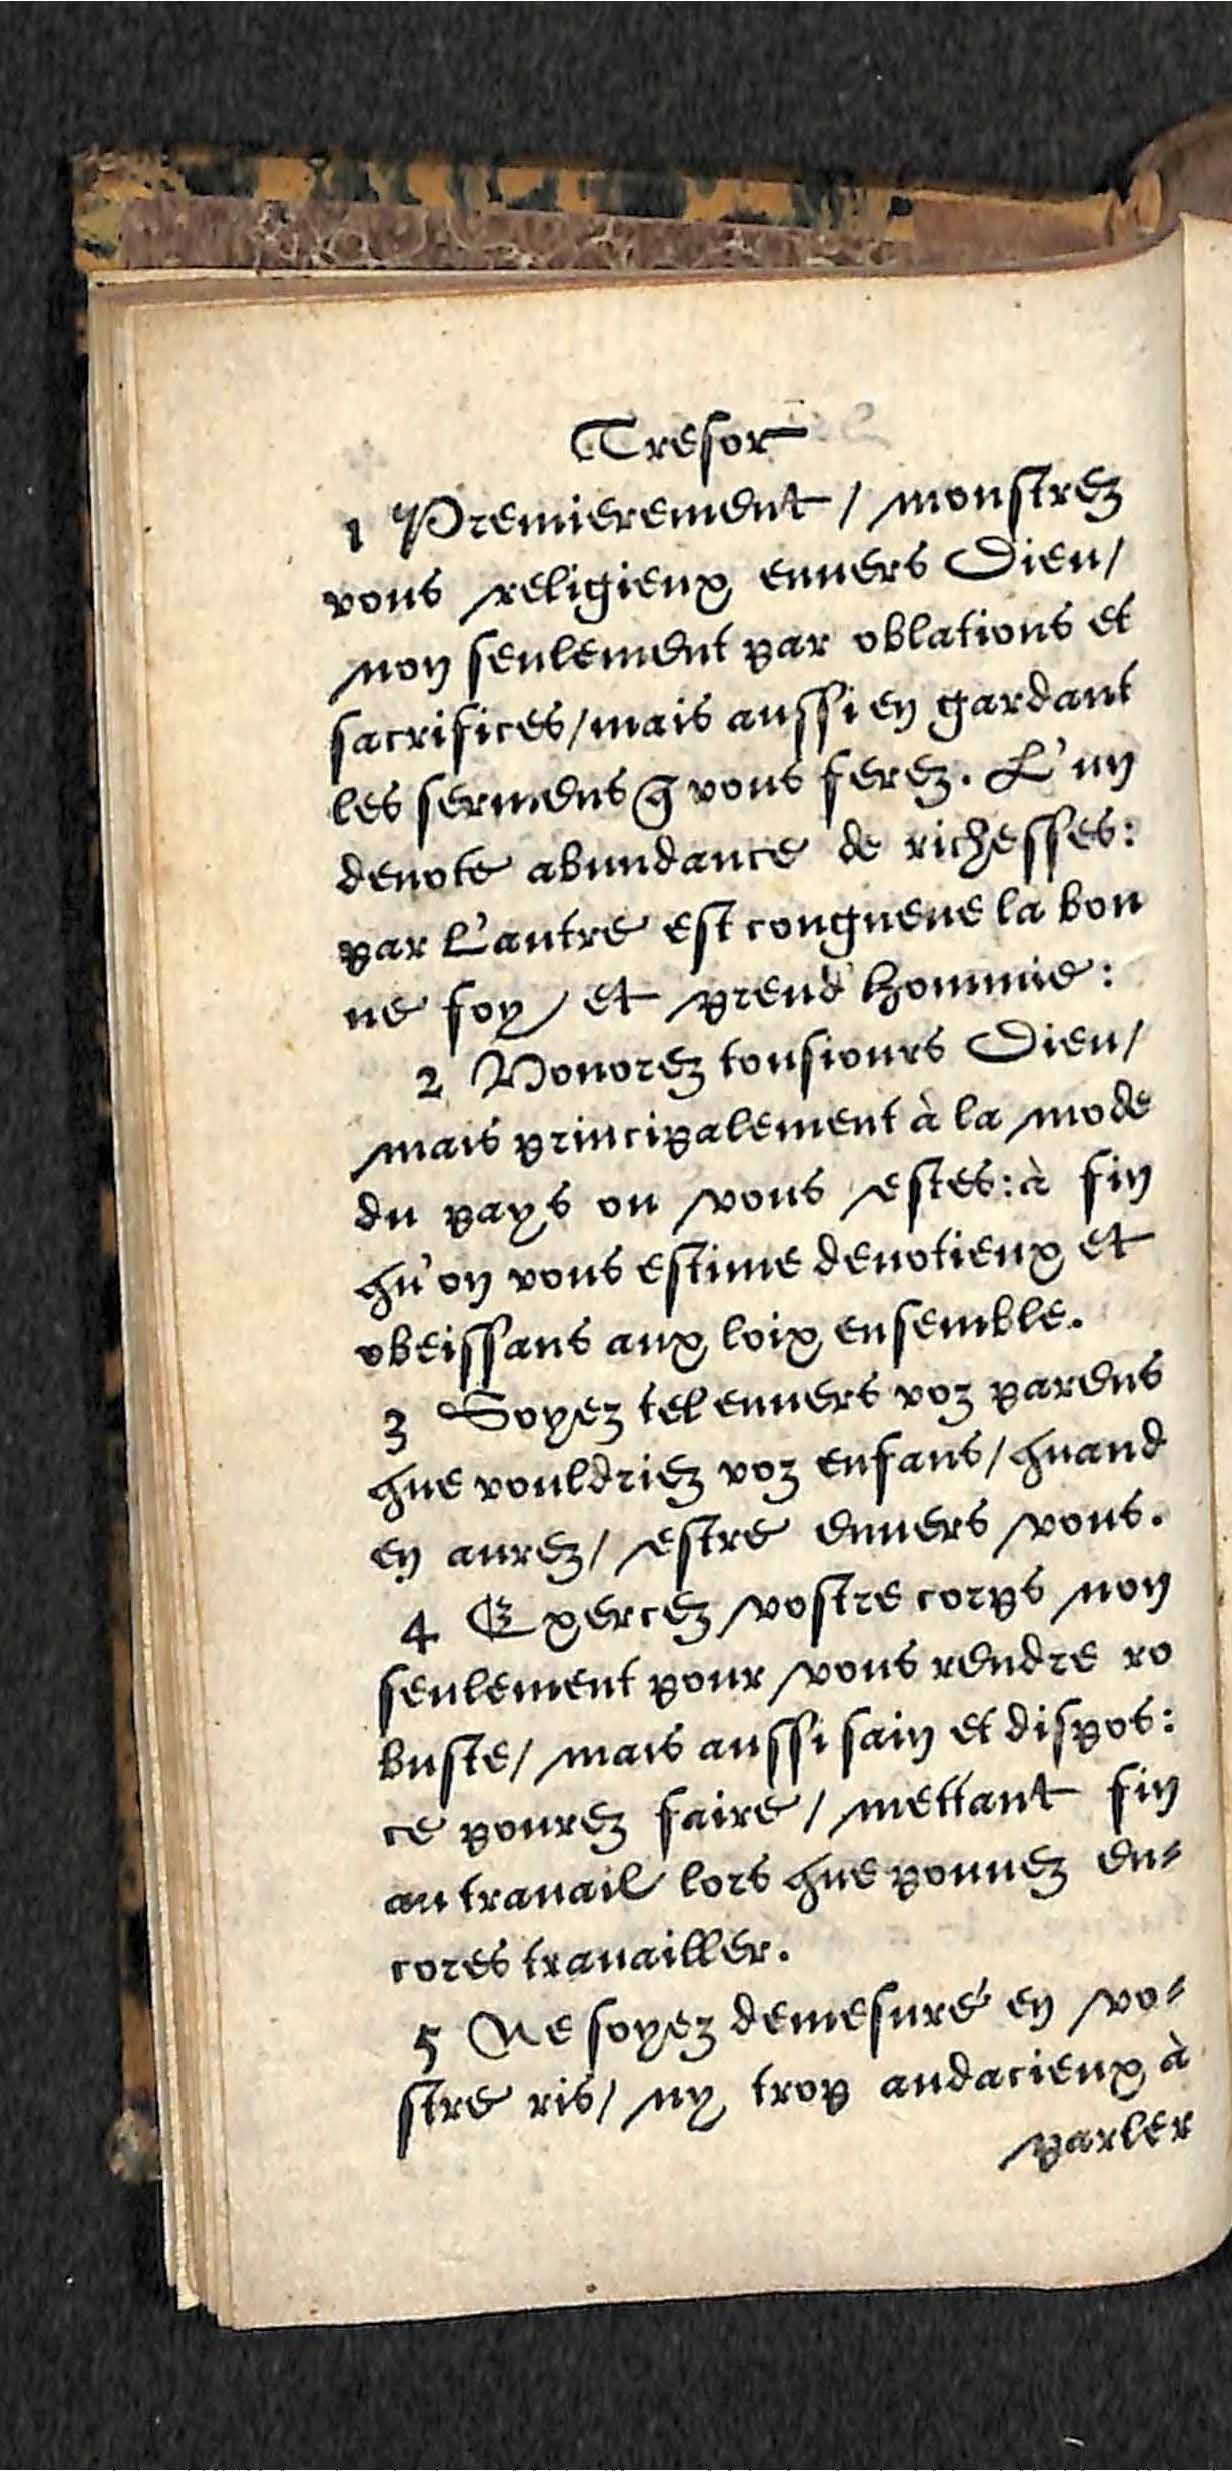 Tresor
1 Premierement / monstrez
vous religieux enuers Dieu /
non seulement par oblations et
sacrifices / mais aussi en gardant
les sermens q̃ vous ferez. L'un
denote abundance de richesses:
par L'autre est congneue la bon
ne foy / et preud'hommie:
2 Honorez tousiours Dieu /
mais principalement à la mode
du pays ou vous estes: à fin
qu'on vous estime deuotieux et
obeissans aux loix ensemble.
3 Soyez tel enuers voz parens
que vouldriez voz enfans / quand
en aurez / estre enuers vous.
4 Exercez vostre corps non
seulement pour vous rendre ro
buste / mais aussi sain et dispos:
ce pourez faire / mettant fin
au trauail lors que pouuez en-
cores trauailler.
5 Ne soyez demesuré en vo-
stre ris / ny trop audacieux à
parler